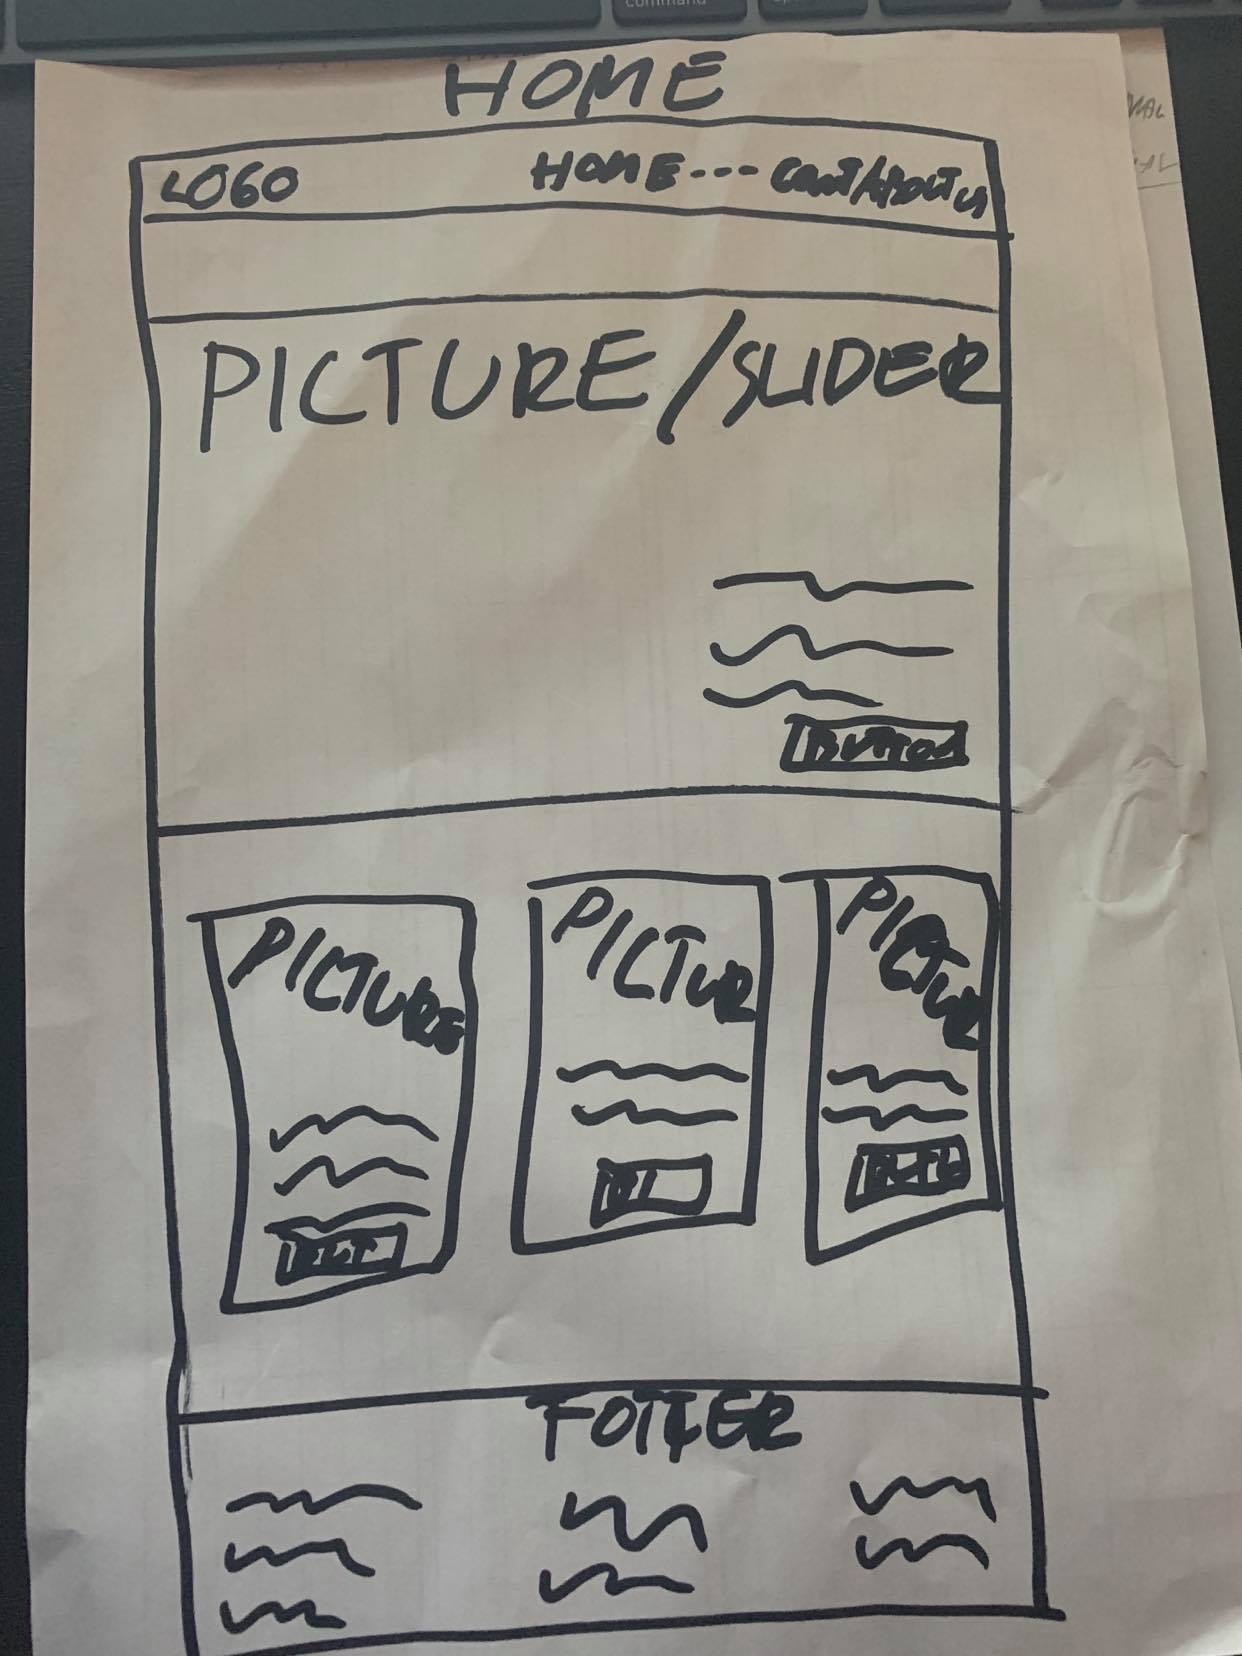 command
HOME
LOGO HOME---CONT/ABOUT US
PICTURE/SLIDER
BUTTON
PICTURE PICTUR PICTUR
BUT
FOTTER